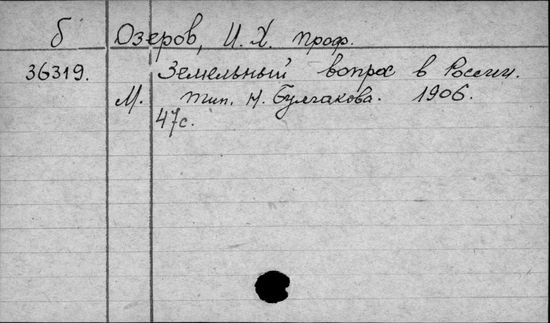 б Озеров, И. Х. проф.
36319. Земельный вопрос в России.
М. тип. И. Булгакова. 1906.
47с.